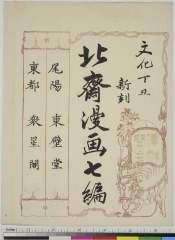 文化丁丑
新刻
北齋漫画七編
尾陽 東壁堂
東都 衆星閣